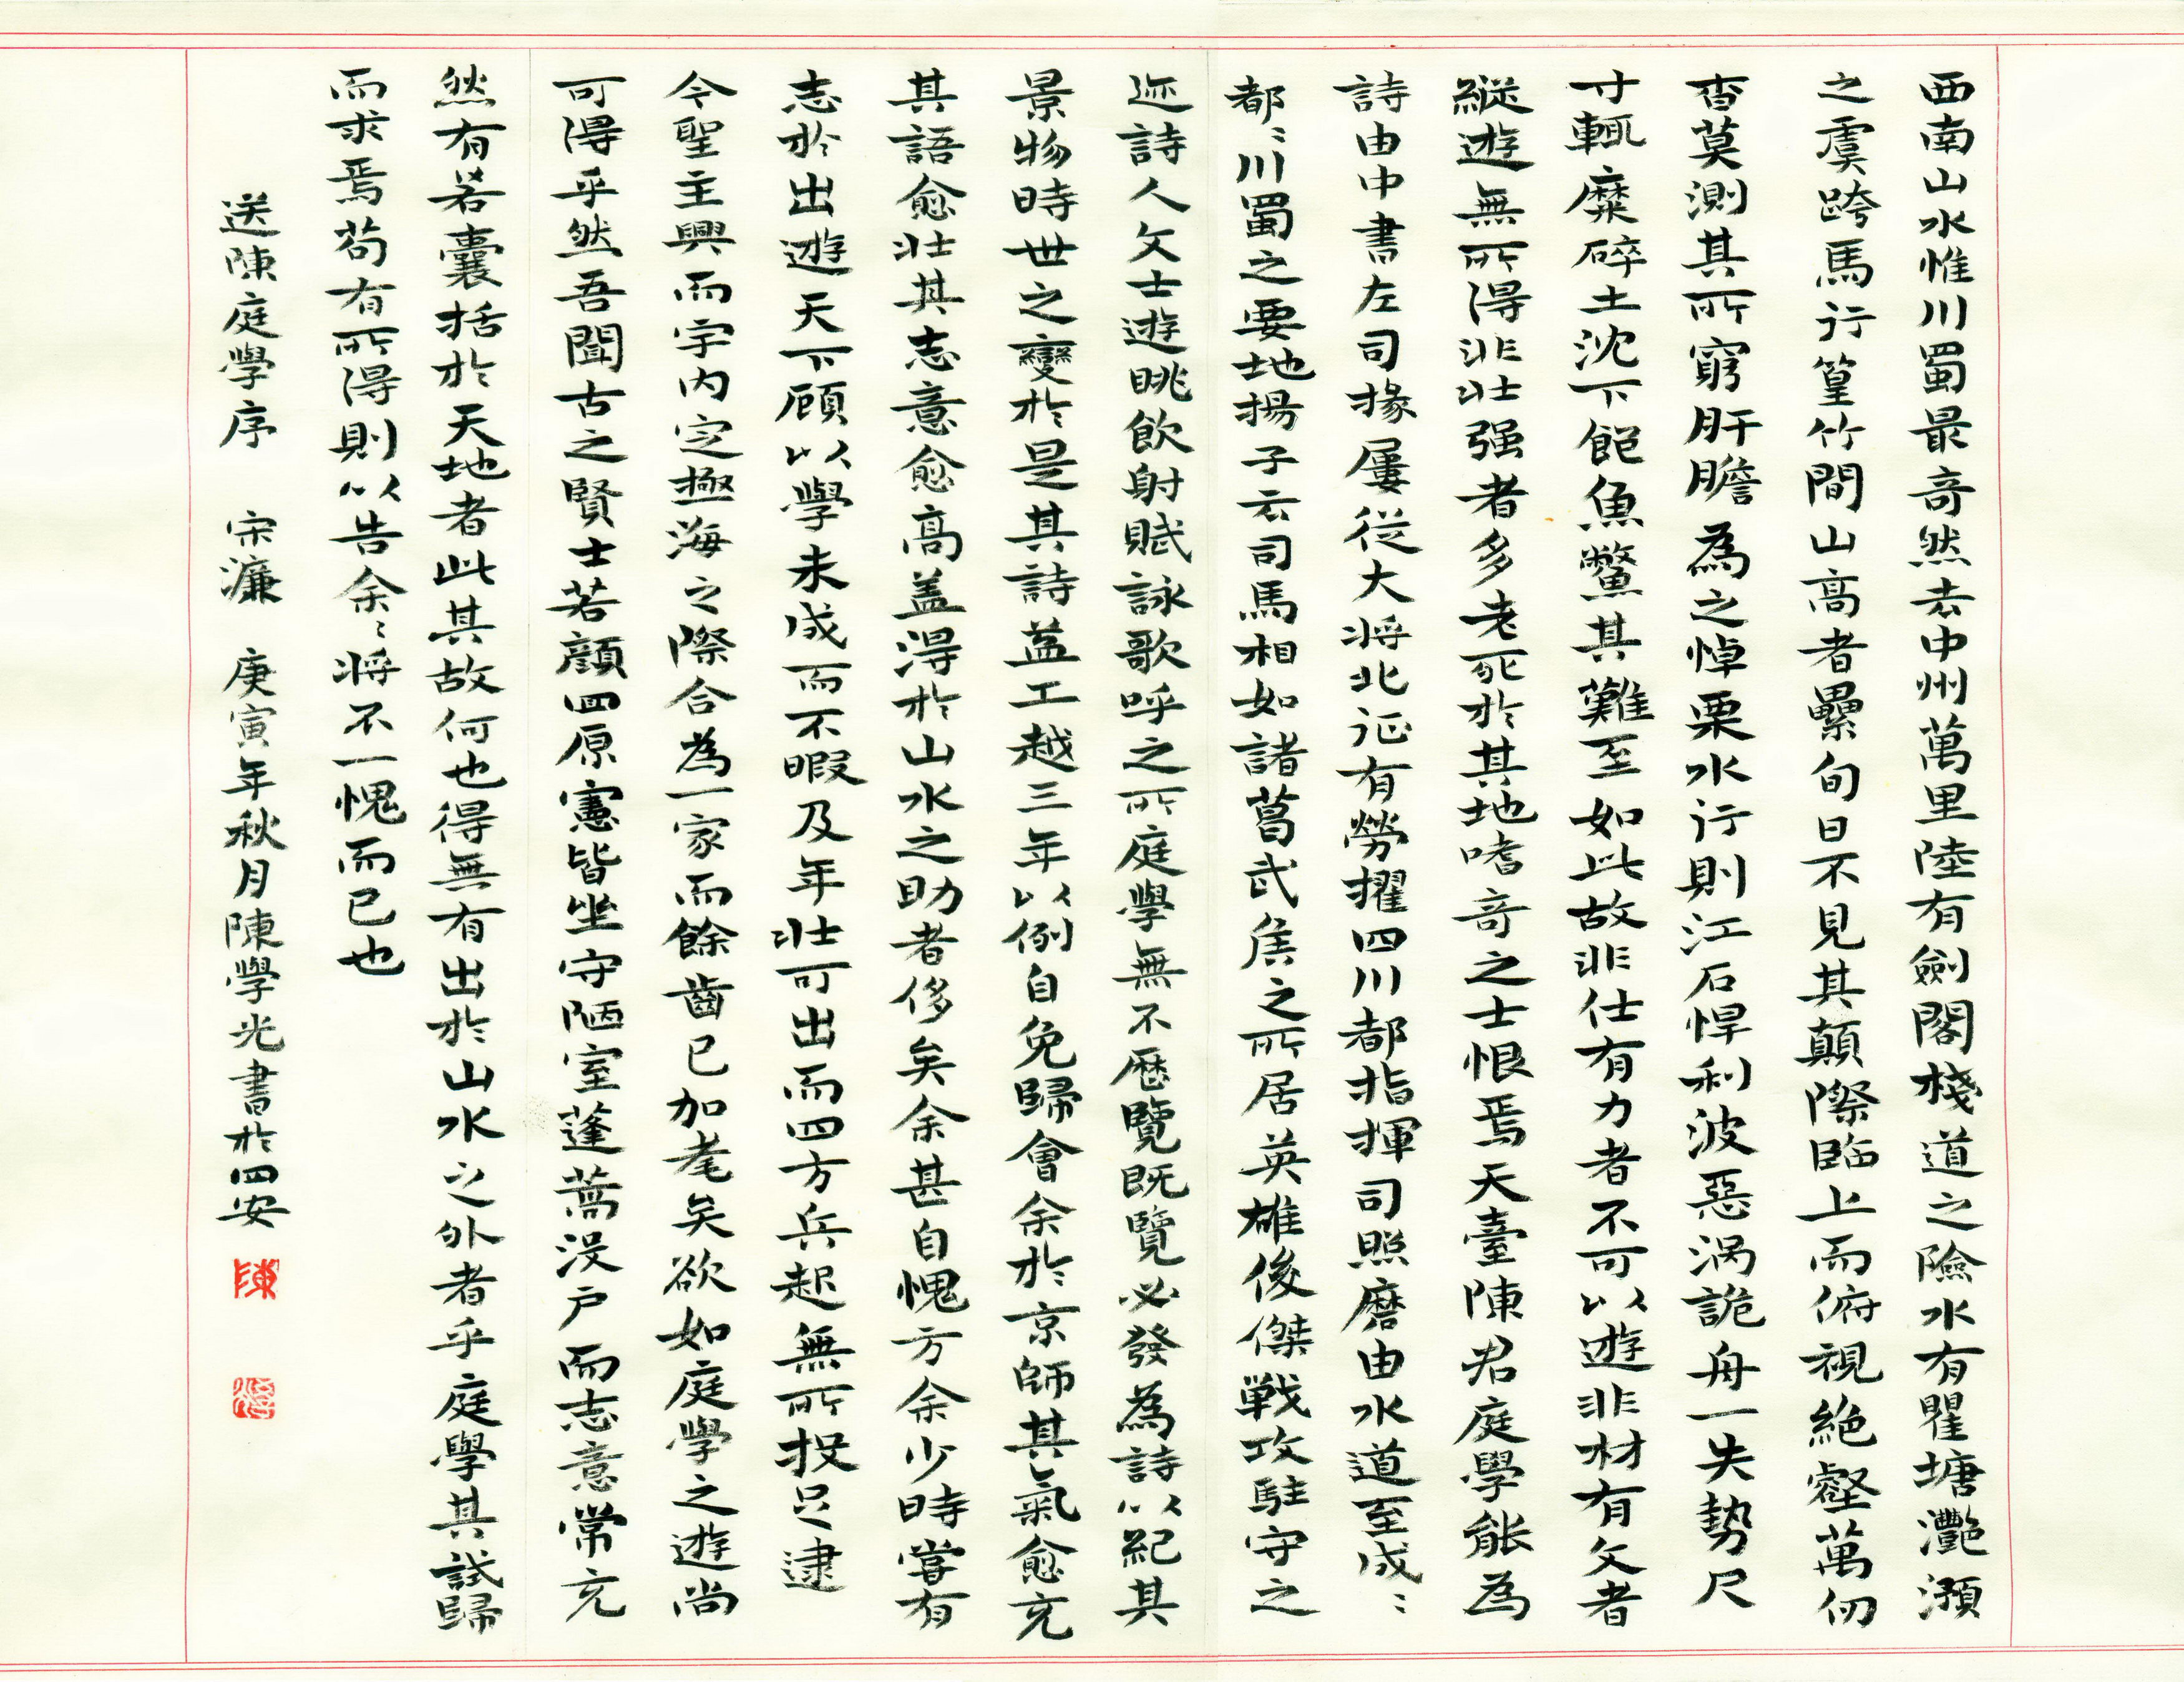 西南山水惟川蜀最奇然去中州萬里陸有劍閣棧道之險水有瞿塘灩澦
之虞跨馬行篁竹間山高者纍旬日不見其顛際臨上而俯視絶壑萬仞
杳莫測其所窮肝膽為之悼栗水行則江石悍利波惡渦詭舟一失勢尺
寸輒糜碎土沈下飽魚鱉其難至如此故非仕有力者不可以遊非材有文者
縱遊無所得非壯强者多老死於其地嗜奇之士恨焉天臺陳君庭學能為
詩由中書左司掾屢從大將北征有勞擢四川都指揮司照磨由水道至成〻
都〻川蜀之要地揚子云司馬相如諸葛武侯之所居英雄俊傑戰攻駐守之
迹詩人文士遊眺飲射賦詠歌呼之所庭學無不歷覽既覽必發為詩以紀其
景物時世之變於是其詩益工越三年以例自免歸會余於京師其氣愈充
其語愈壯其志意愈高盖得於山水之助者侈矣余甚自愧方余少時嘗有
志於出遊天下顧以學未成而不暇及年壯可出而四方兵起無所投足逮
今聖主興而宇内定極海之際合為一家而餘齒已加耄矣欲如庭學之遊尚
可得乎然吾聞古之賢士若顏回原憲皆坐守陋室蓬蒿没户而志意常充
然有若囊括於天地者此其故何也得無有出於山水之外者乎庭學其試歸
而求焉苟有所得則以告余〻將不一愧而已也
送陳庭學序 宋濂 庚寅年秋月陳學光書於四安
陳